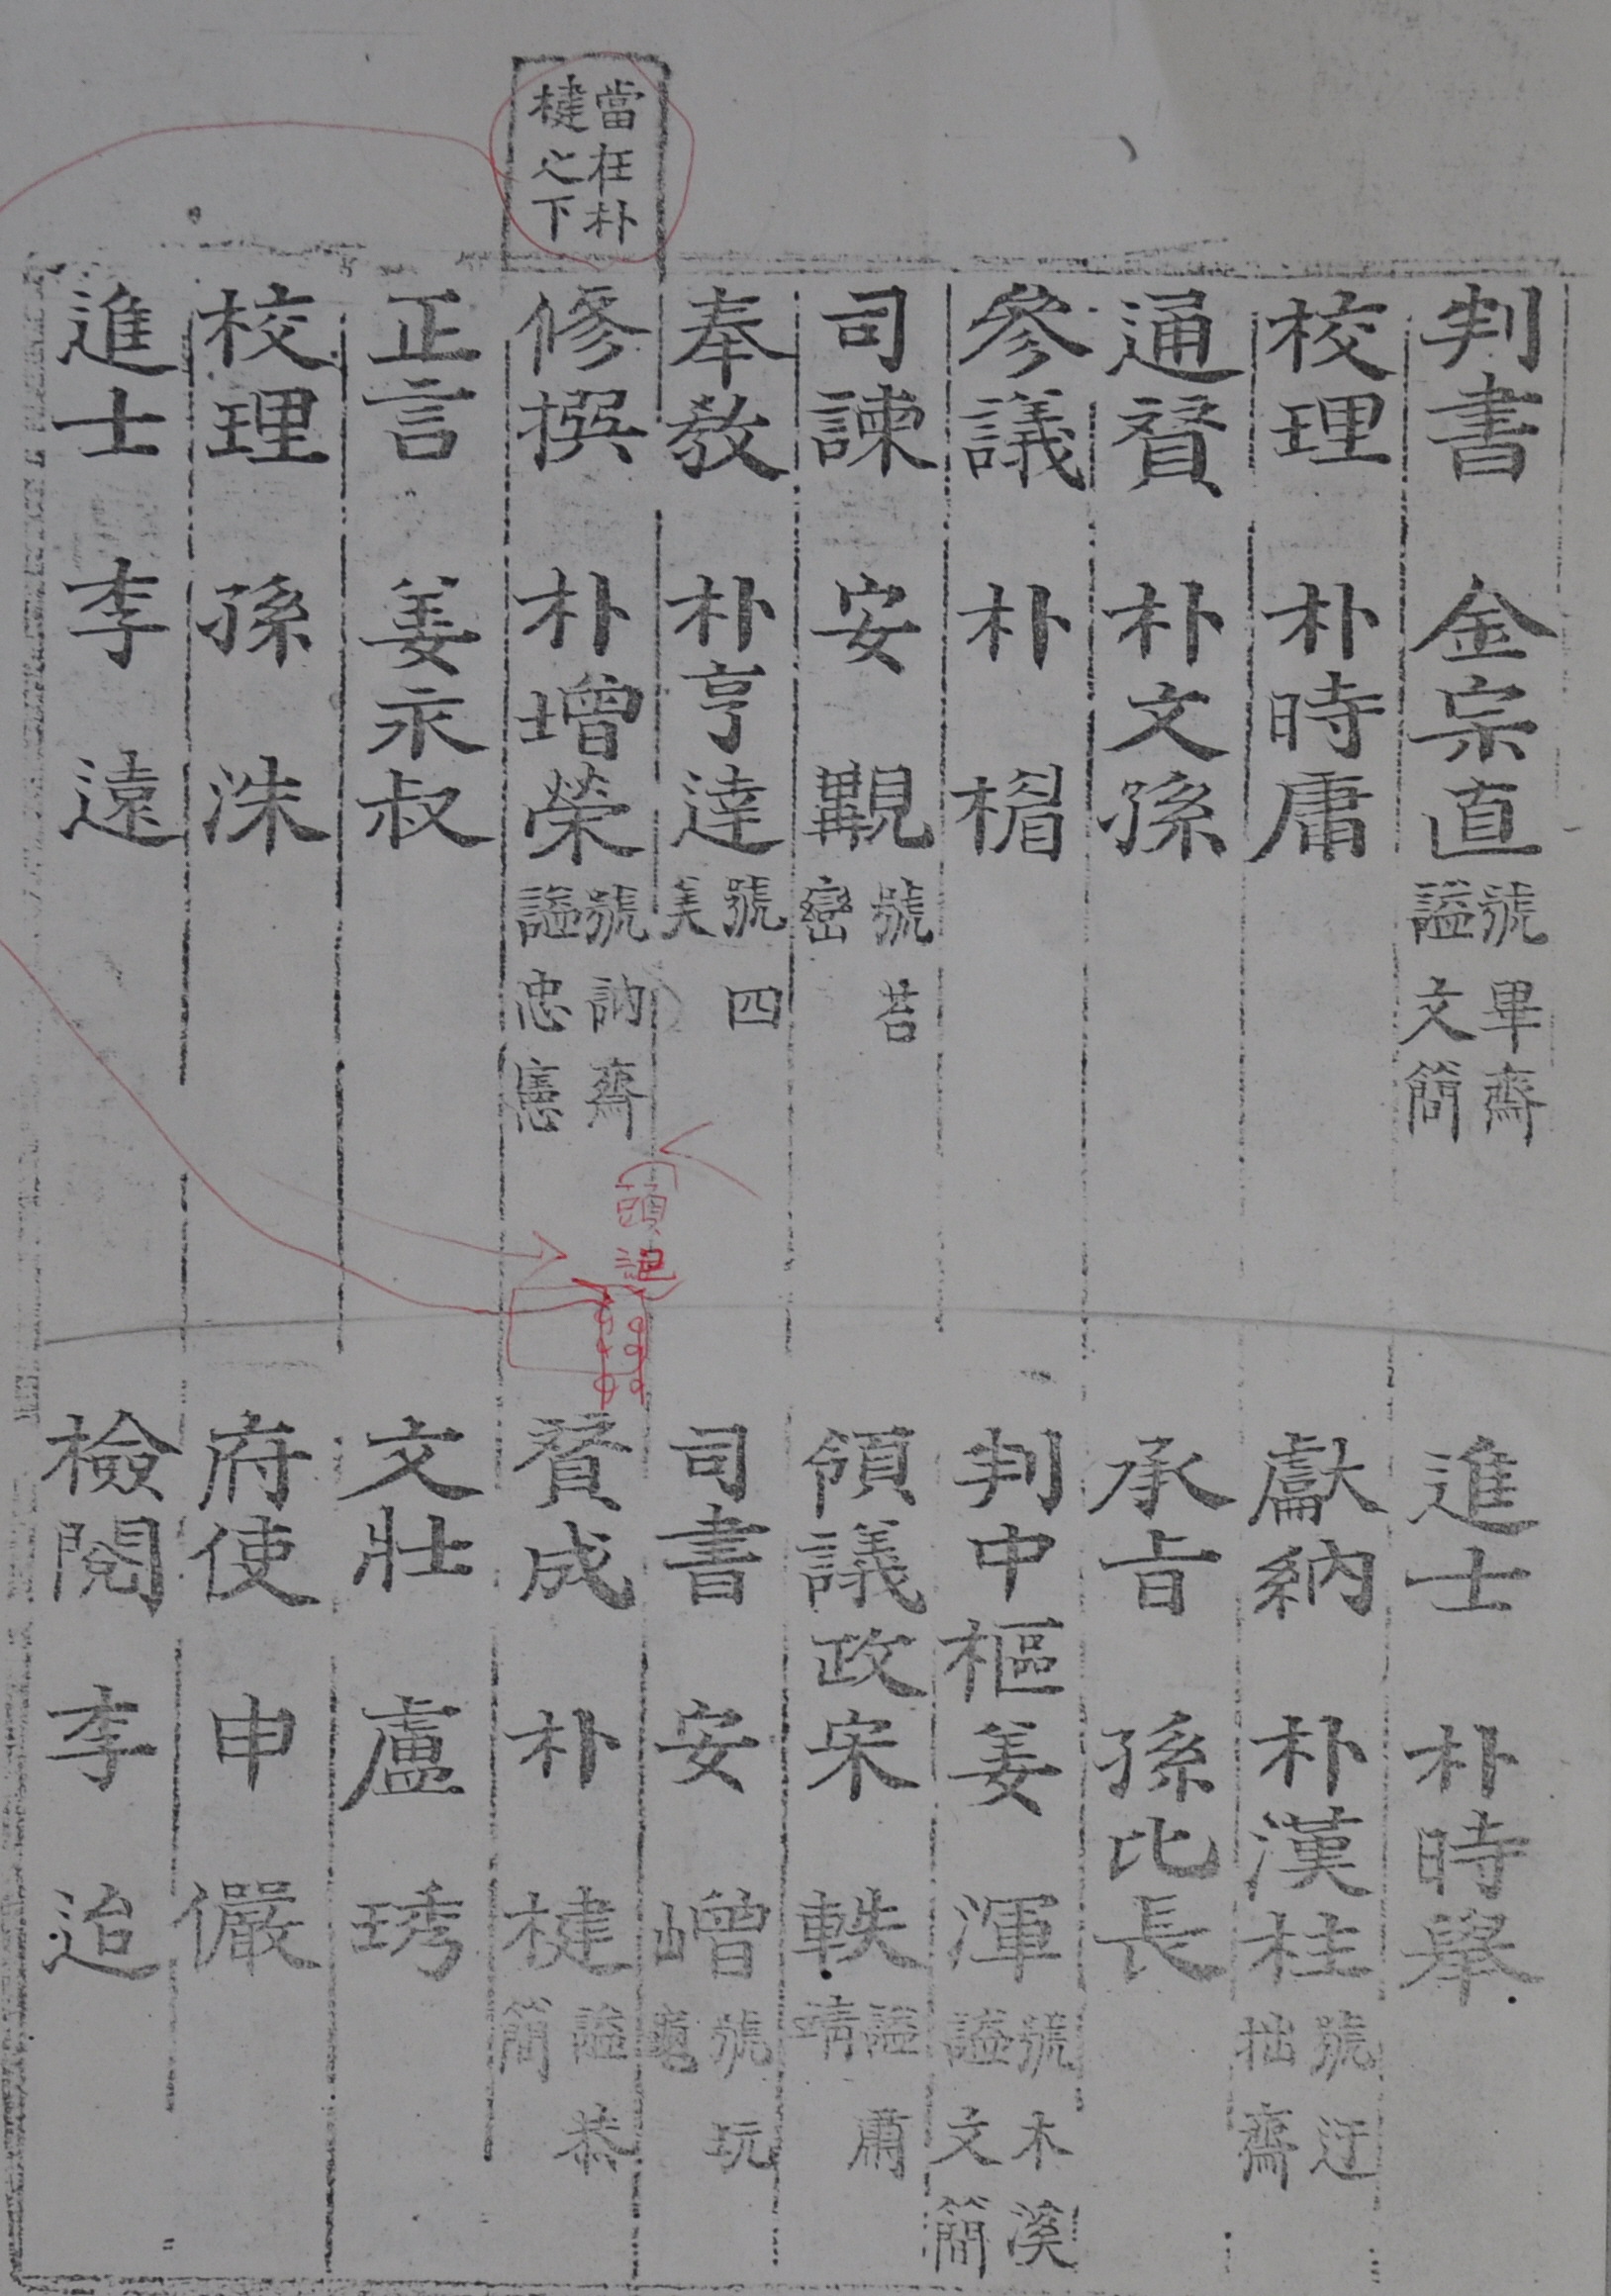 當在朴
楗之下
判書 金宗直 號畢齋
諡文簡
校理 朴時庸
通贊 朴文孫
參議 朴楣
司諫 安覯 號苔
巒
奉教 朴亨達 號四
美
修撰 朴增榮 號訥齋
諡忠憲
頭記
正言 姜永叔
校理 孫洙
進士 李遠
進士 朴時擧
獻納 朴漢柱 號迂
拙齋
承旨 孫比長
判中樞 姜渾 號木溪
諡文簡
領議政 宋軼 諡肅
靖
司書 安嶒 號玩
龜
贊成 朴楗 諡恭
簡
文壯 盧琇
府使 申儼
檢閱 李迨